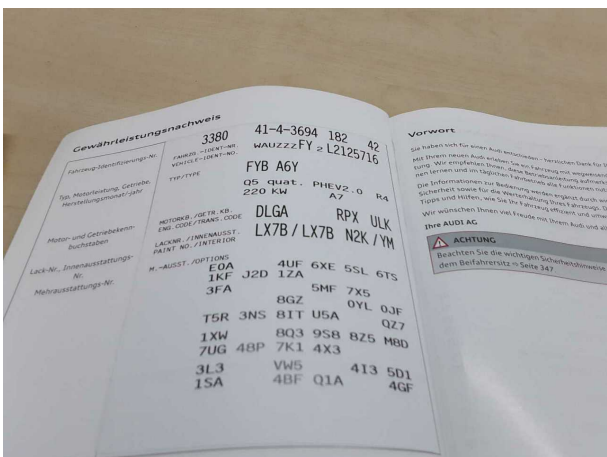 Gewährleistungsnachweis
Fahrzeug-Identifizierungs-Nr.
Typ, Motorleistung, Getriebe,
Herstellungsmonat/-jahr
Motor- und Getriebekenn-
buchstaben
Lack-Nr., Innenausstattungs-
Nr.
Mehrausstattungs-Nr.
3380 41-4-3694 182 42
FAHRZG.-IDENT-NR.
VEHICLE-IDENT-NO.
WAUZZZFY 2 L2125716
TYP/TYPE
FYB A6Y
Q5 quat. PHEV2.0 R4
220 KW A7
MOTORKB./GETR.KB.
ENG.CODE/TRANS.CODE
DLGA RPX ULK
LACKNR./INNENAUSST.
PAINT NO./INTERIOR
LX7B/LX7B N2K/YM
M.-AUSST./OPTIONS
E0A 4UF 6XE 5SL 6TS
1KF J2D 1ZA
3FA 5MF 7X5
8GZ 0YL 0JF
T5R 3NS 8IT U5A QZ7
1XW 8Q3 9S8 8Z5 M8D
7UG 48P 7K1 4X3
3L3 VW5 4I3 5D1
1SA 4BF Q1A 4GF
Vorwort
Sie haben sich für einen Audi entschieden - herzlichen Dank für
Mit Ihrem neuen Audi erleben Sie ein Fahrzeug mit
tung. Wir empfehlen Ihnen, diese Betriebsanleitung
nen lernen und im täglichen Fahrbetrieb alle Funktionen
Die Informationen zur Bedienung werden ergänzt durch
Sicherheit sowie für die Werterhaltung Ihres Fahrzeugs.
Tipps und Hilfen, wie Sie Ihr Fahrzeug effizient und
Wir wünschen Ihnen viel Freude mit Ihrem Audi und
Ihre AUDI AG
ACHTUNG
Beachten Sie die wichtigen Sicherheitshinweise
dem Beifahrersitz ⇨ Seite 347.